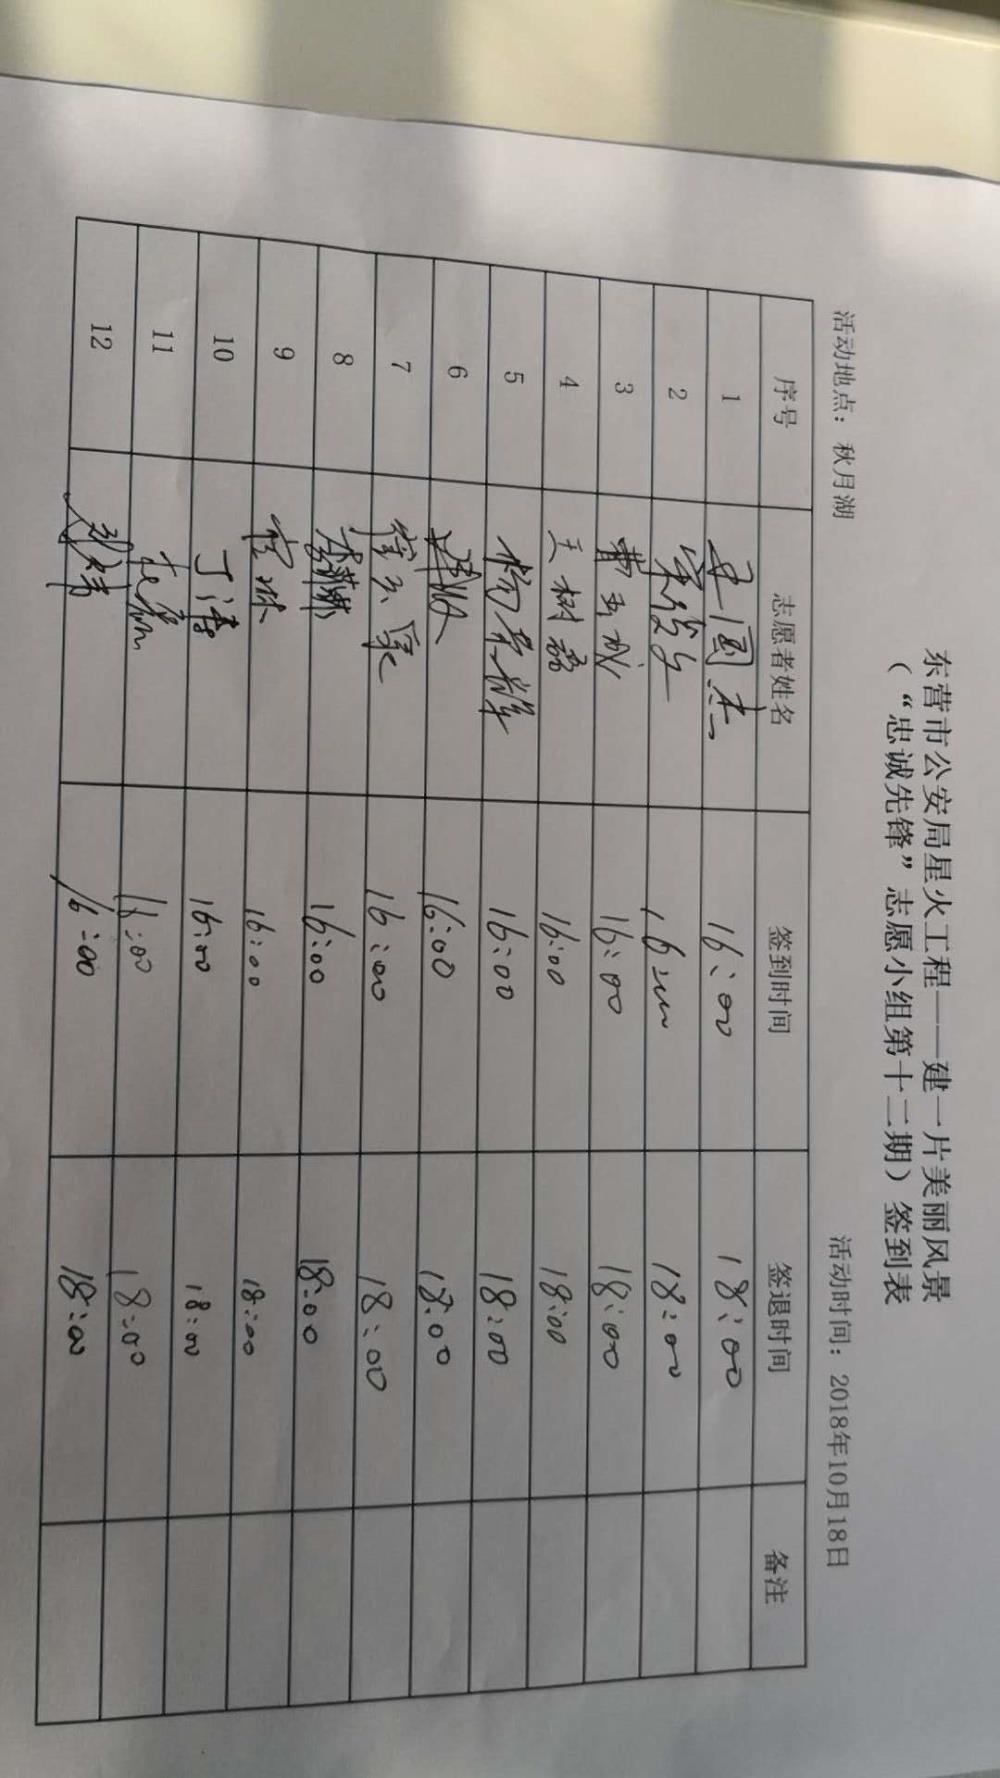 东营市公安局星火工程——建一片美丽风景
（“忠诚先锋”志愿小组第十二期）签到表
活动地点：秋月湖 活动时间：2018年10月18日
序号 志愿者姓名 签到时间 签退时间 备注
1 国杰 16:00 18:00
2 16:00 18:00
3 费玉成 16:00 18:00
4 王树磊 16:00 18:00
5 杨荣辉 16:00 18:00
6 16:00 18:00
7 16:00 18:00
8 李娜娜 16:00 18:00
9 16:00 18:00
10 丁涛 16:00 18:00
11 16:00 18:00
12 16:00 18:00